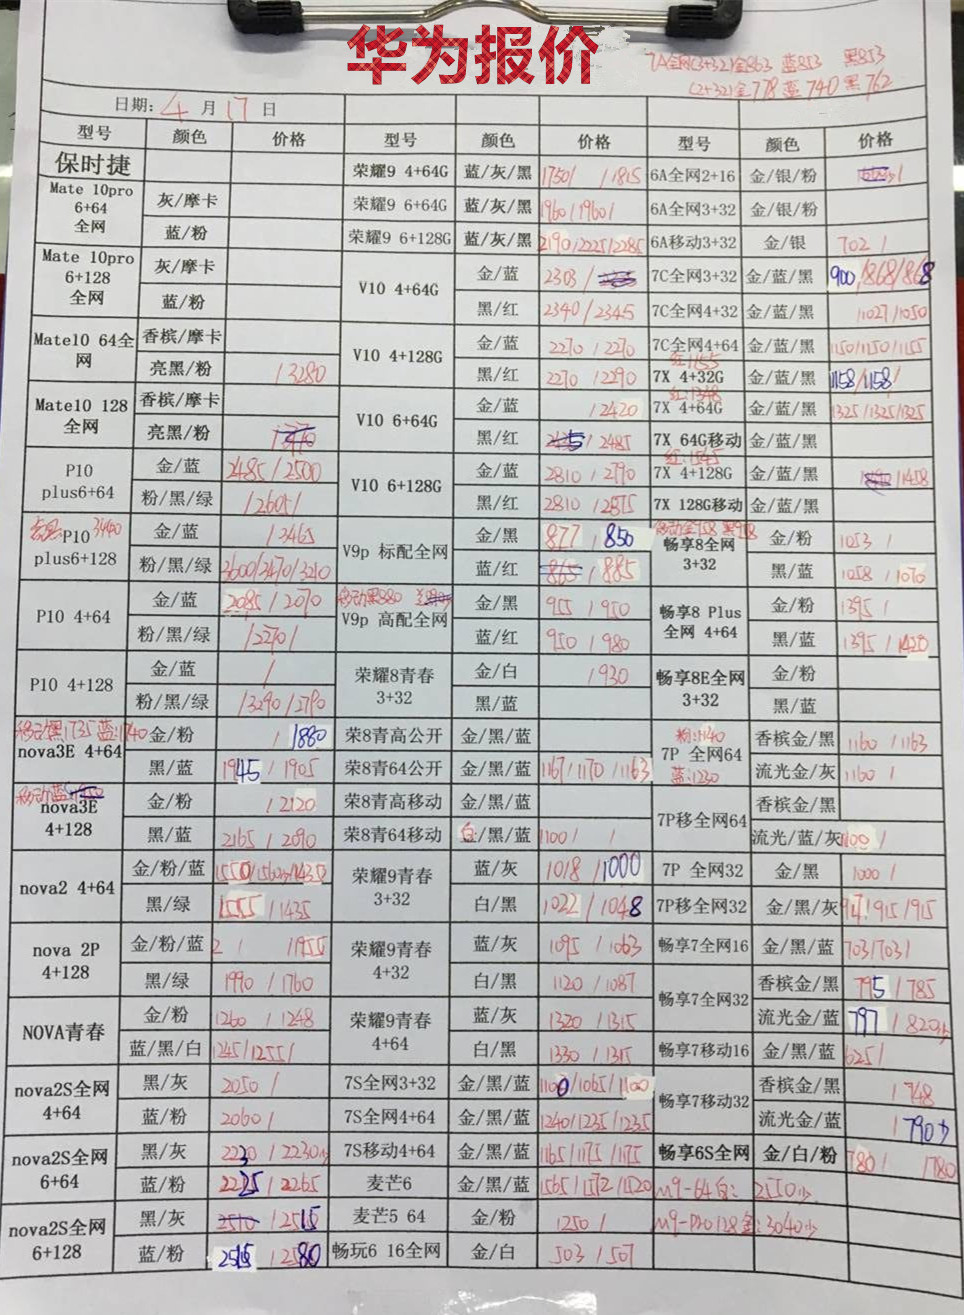 华为报价
7A全网(3+32)金863 蓝853 黑853
(2+32)金778 蓝740 黑762
日期: 4月17日
型号 颜色 价格 型号 颜色 价格 型号 颜色 价格
保时捷 荣耀9 4+64G 蓝/灰/黑 1750/ /1815 6A全网2+16 金/银/粉
Mate 10pro 6+64 全网 灰/摩卡 荣耀9 6+64G 蓝/灰/黑 1960/1960/ 6A全网3+32 金/银/粉
蓝/粉 荣耀9 6+128G 蓝/灰/黑 2190/2225/2285 6A移动3+32 金/银 702/
Mate 10pro 6+128 全网 灰/摩卡 V10 4+64G 金/蓝 2303/ 7C全网3+32 金/蓝/黑 900/868/868
蓝/粉 黑/红 2340/2345 7C全网4+32 金/蓝/黑 /1027/1050
Mate10 64全网 香槟/摩卡 V10 4+128G 金/蓝 2270/2270 7C全网4+64 金/蓝/黑 1150/1150/1155
亮黑/粉 /3280 黑/红 2270/2290 红:1155 7X 4+32G 金/蓝/黑 1158/1158/
Mate10 128全网 香槟/摩卡 V10 6+64G 金/蓝 /2420 红:1348 7X 4+64G 金/蓝/黑 1325/1325/1325
亮黑/粉 黑/红 /2485 7X 64G移动 金/蓝/黑
P10 plus6+64 金/蓝 2485/2500 V10 6+128G 金/蓝 2810/2790 红:1545 7X 4+128G 金/蓝/黑 /1458
粉/黑/绿 /2605/ 黑/红 2810/2875 7X 128G移动 金/蓝/黑
3440 P10 plus6+128 金/蓝 /3465 V9p 标配全网 金/黑 877/850 畅享8全网 3+32 金/粉 1053/
粉/黑/绿 3600/3470/3210 蓝/红 /885 黑/蓝 1058/1070
P10 4+64 金/蓝 2085/2070 移动黑880 V9p 高配全网 金/黑 955/950 畅享8 Plus 全网 4+64 金/粉 1395/
粉/黑/绿 /2270/ 蓝/红 950/980 黑/蓝 1395/1420
P10 4+128 金/蓝 / 荣耀8青春 3+32 金/白 /930 畅享8E全网 3+32 金/粉
粉/黑/绿 /3290/2790 黑/蓝 黑/蓝
移动黑1735 蓝:1740 nova3E 4+64 金/粉 /1880 荣8青高公开 金/黑/蓝 粉:1140 7P 全网64 蓝:1230 香槟金/黑 1160/1163
黑/蓝 1945/1905 荣8青64公开 金/黑/蓝 1167/1170/1163 流光金/灰 1160/
nova3E 4+128 金/粉 /2120 荣8青高移动 金/黑/蓝 7P移全网64 香槟金/黑
黑/蓝 2165/2090 荣8青64移动 白/黑/蓝 1100/ / 流光/蓝/灰 1100/
nova2 4+64 金/粉/蓝 荣耀9青春 3+32 蓝/灰 1018/1000 7P 全网32 金/黑 1000/
黑/绿 1555/1435 白/黑 1022/1048 7P移全网32 金/黑/灰 917/915/915
nova 2P 4+128 金/粉/蓝 /1955 荣耀9青春 4+32 蓝/灰 1095/1063 畅享7全网16 金/黑/蓝 703/703/
黑/绿 1990/1760 白/黑 1120/1087 畅享7全网32 香槟金/黑 795/785
NOVA青春 金/粉 1260/1248 荣耀9青春 4+64 蓝/灰 1320/1315 流光金/蓝 797/820少
蓝/黑/白 1245/1255/ 白/黑 1330/1315 畅享7移动16 金/黑/蓝 625/
nova2S全网 4+64 黑/灰 2050/ 7S全网3+32 金/黑/蓝 1100/1065/1100 畅享7移动32 香槟金/黑 /748
蓝/粉 2060/ 7S全网4+64 金/黑/蓝 1240/1235/1235 流光金/蓝 /790少
nova2S全网 6+64 黑/灰 2230/2230少 7S移动4+64 金/黑/蓝 1165/1175/1175 畅享6S全网 金/白/粉 780/ /780
蓝/粉 2225/2265 麦芒6 金/黑/蓝 1565/1572/1520 M9-64白: 2550少
nova2S全网 6+128 黑/灰 2510/2515 麦芒5 64 金/粉 1250/ M9-Pro128金:3040少
蓝/粉 2515/2580 畅玩6 16全网 金/白 503/507